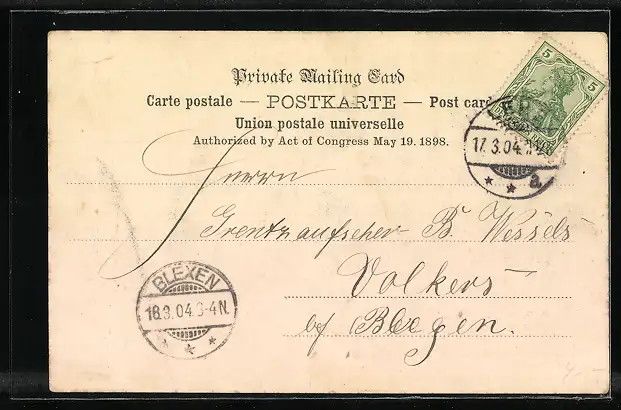 Private Mailing Card
Carte postale — POSTKARTE — Post card
Union postale universelle
Authorized by Act of Congress May 19. 1898.
5 5
17.3.04
a
Herrn
Grentzaufseher B. Wessels
Volkers
bei Blexen.
BLEXEN
18.3.04.3-4N.